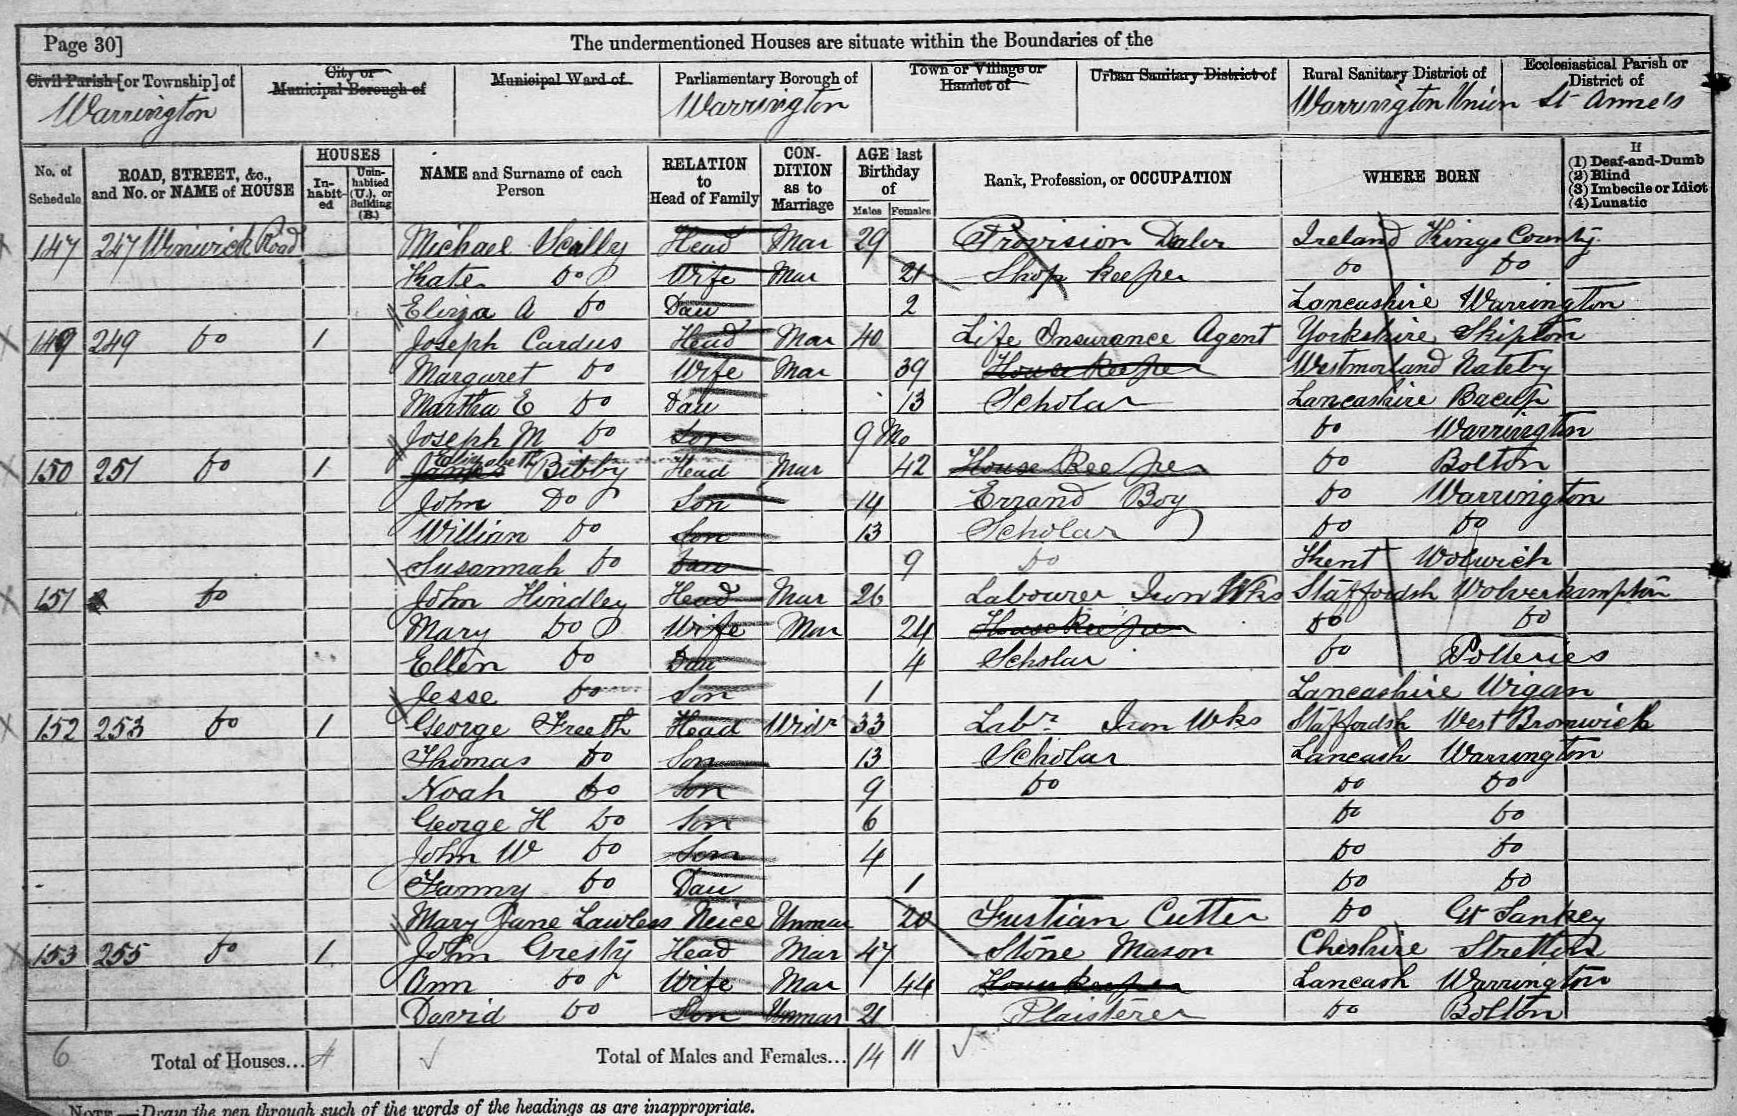 Page 30] The undermentioned Houses are situate within the Boundaries of the
Civil Parish [or Township] of City or Municipal Borough of Municipal Ward of Parliamentary Borough of Town or Village or Hamlet of Urban Sanitary District of Rural Sanitary District of Ecclesiastical Parish or District of
Warrington Warrington Warrington Union St Anne's
No. of Schedule ROAD, STREET, &c., and No. or NAME of HOUSE HOUSES In-habit-ed Unin-habited (U.), or Building (B.) NAME and Surname of each Person RELATION to Head of Family CON-DITION as to Marriage AGE last Birthday of Males Females Rank, Profession, or OCCUPATION WHERE BORN If (1) Deaf-and-Dumb (2) Blind (3) Imbecile or Idiot (4) Lunatic
147 247 Winwick Road Michael Scally Head Mar 29 Provision Dealer Ireland Kings County
Kate Do Wife Mar 21 Shop keeper Do Do
Eliza A Do Dau 2 Lancashire Warrington
149 249 Do 1 Joseph Cardus Head Mar 40 Life Insurance Agent Yorkshire Skipton
Margaret Do Wife Mar 39 House keeper Westmorland Nateby
Martha E Do Dau 13 Scholar Lancashire Bacup
Joseph M Do Son 9 Mo Do Warrington
150 251 Do 1 James Elizabeth Bibby Head Mar 42 House Keeper Do Bolton
John Do Son 14 Errand Boy Do Warrington
William Do Son 13 Scholar Do Do
Susannah Do Dau 9 Do Kent Woolwich
151 Do John Hindley Head Mar 26 Labourer Iron Wks Staffordsh Wolverhampton
Mary Do Wife Mar 24 House keeper Do Do
Ellen Do Dau 4 Scholar Do Potteries
Jesse Do Son 1 Lancashire Wigan
152 253 Do 1 George Freeth Head Widr 33 Labr Iron Wks Staffordsh West Bromwich
Thomas Do Son 13 Scholar Lancash Warrington
Noah Do Son 9 Do Do Do
George H Do Son 6 Do Do
John W Do Son 4 Do Do
Fanny Do Dau 1 Do Do
Mary Jane Lawless Neice Unmar 20 Fustian Cutter Do Gt Sankey
153 255 Do 1 John Gresty Head Mar 47 Stone Mason Cheshire Stretton
Ann Do Wife Mar 44 House keeper Lancash Warrington
David Do Son Unmar 21 Plaisterer Do Bolton
6 Total of Houses... 4 Total of Males and Females... 14 11
NOTE.—Draw the pen through such of the words of the headings as are inappropriate.